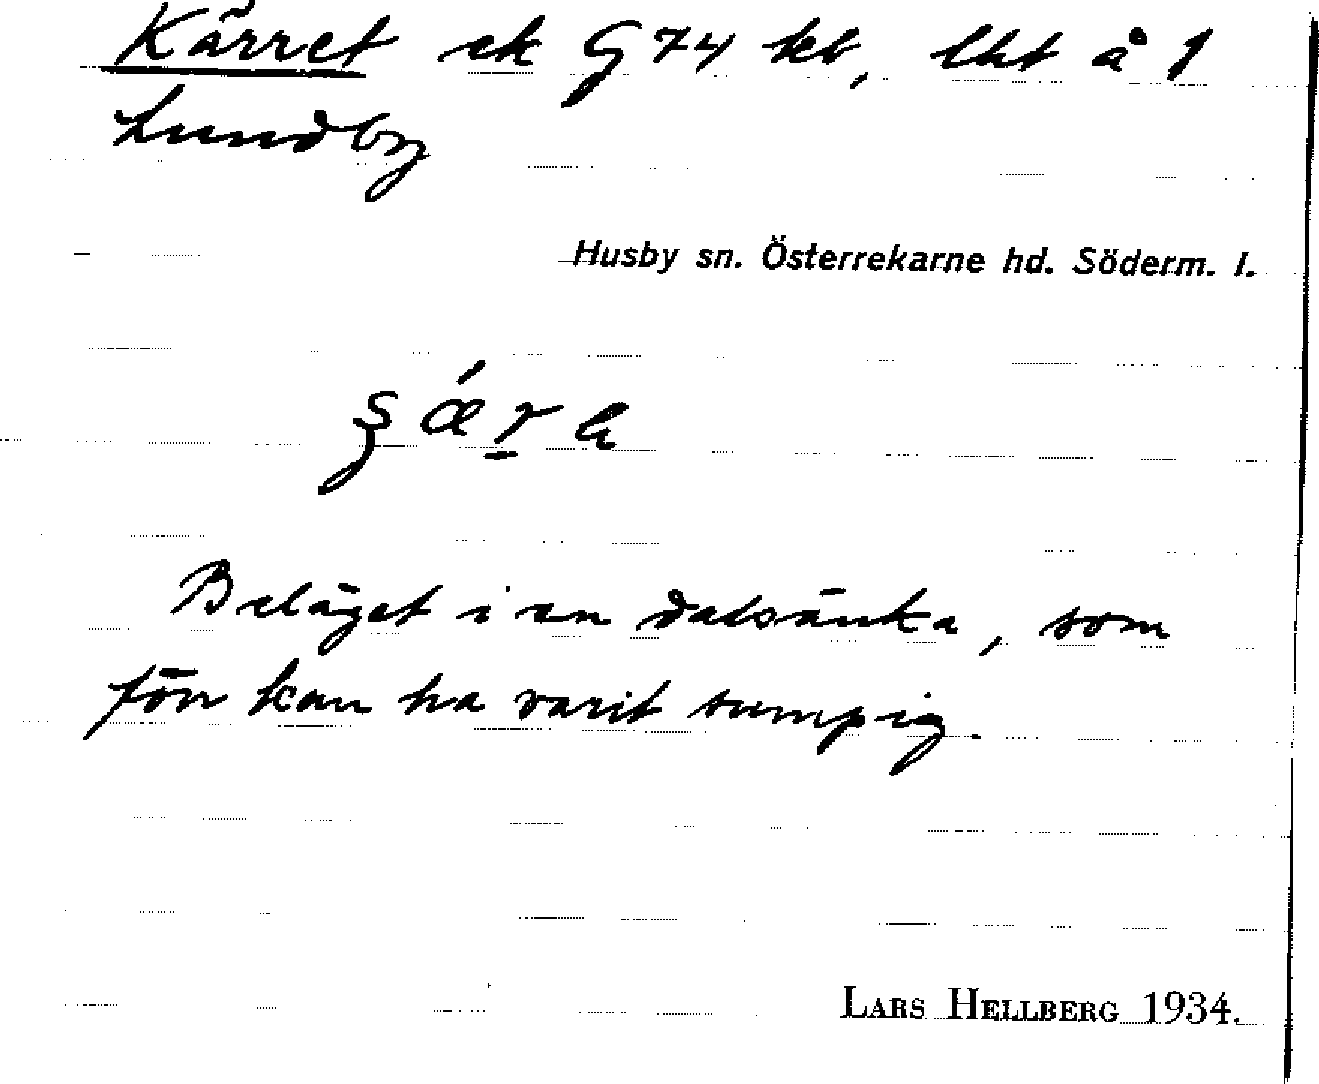 Kärret ek G74 kb, lht å 1
Lundby
Husby sn. Österrekarne hd. Söderm. l.
Beläget i en dalsänka, som
förr kan ha varit sumpig.
LARS HELLBERG 1934.